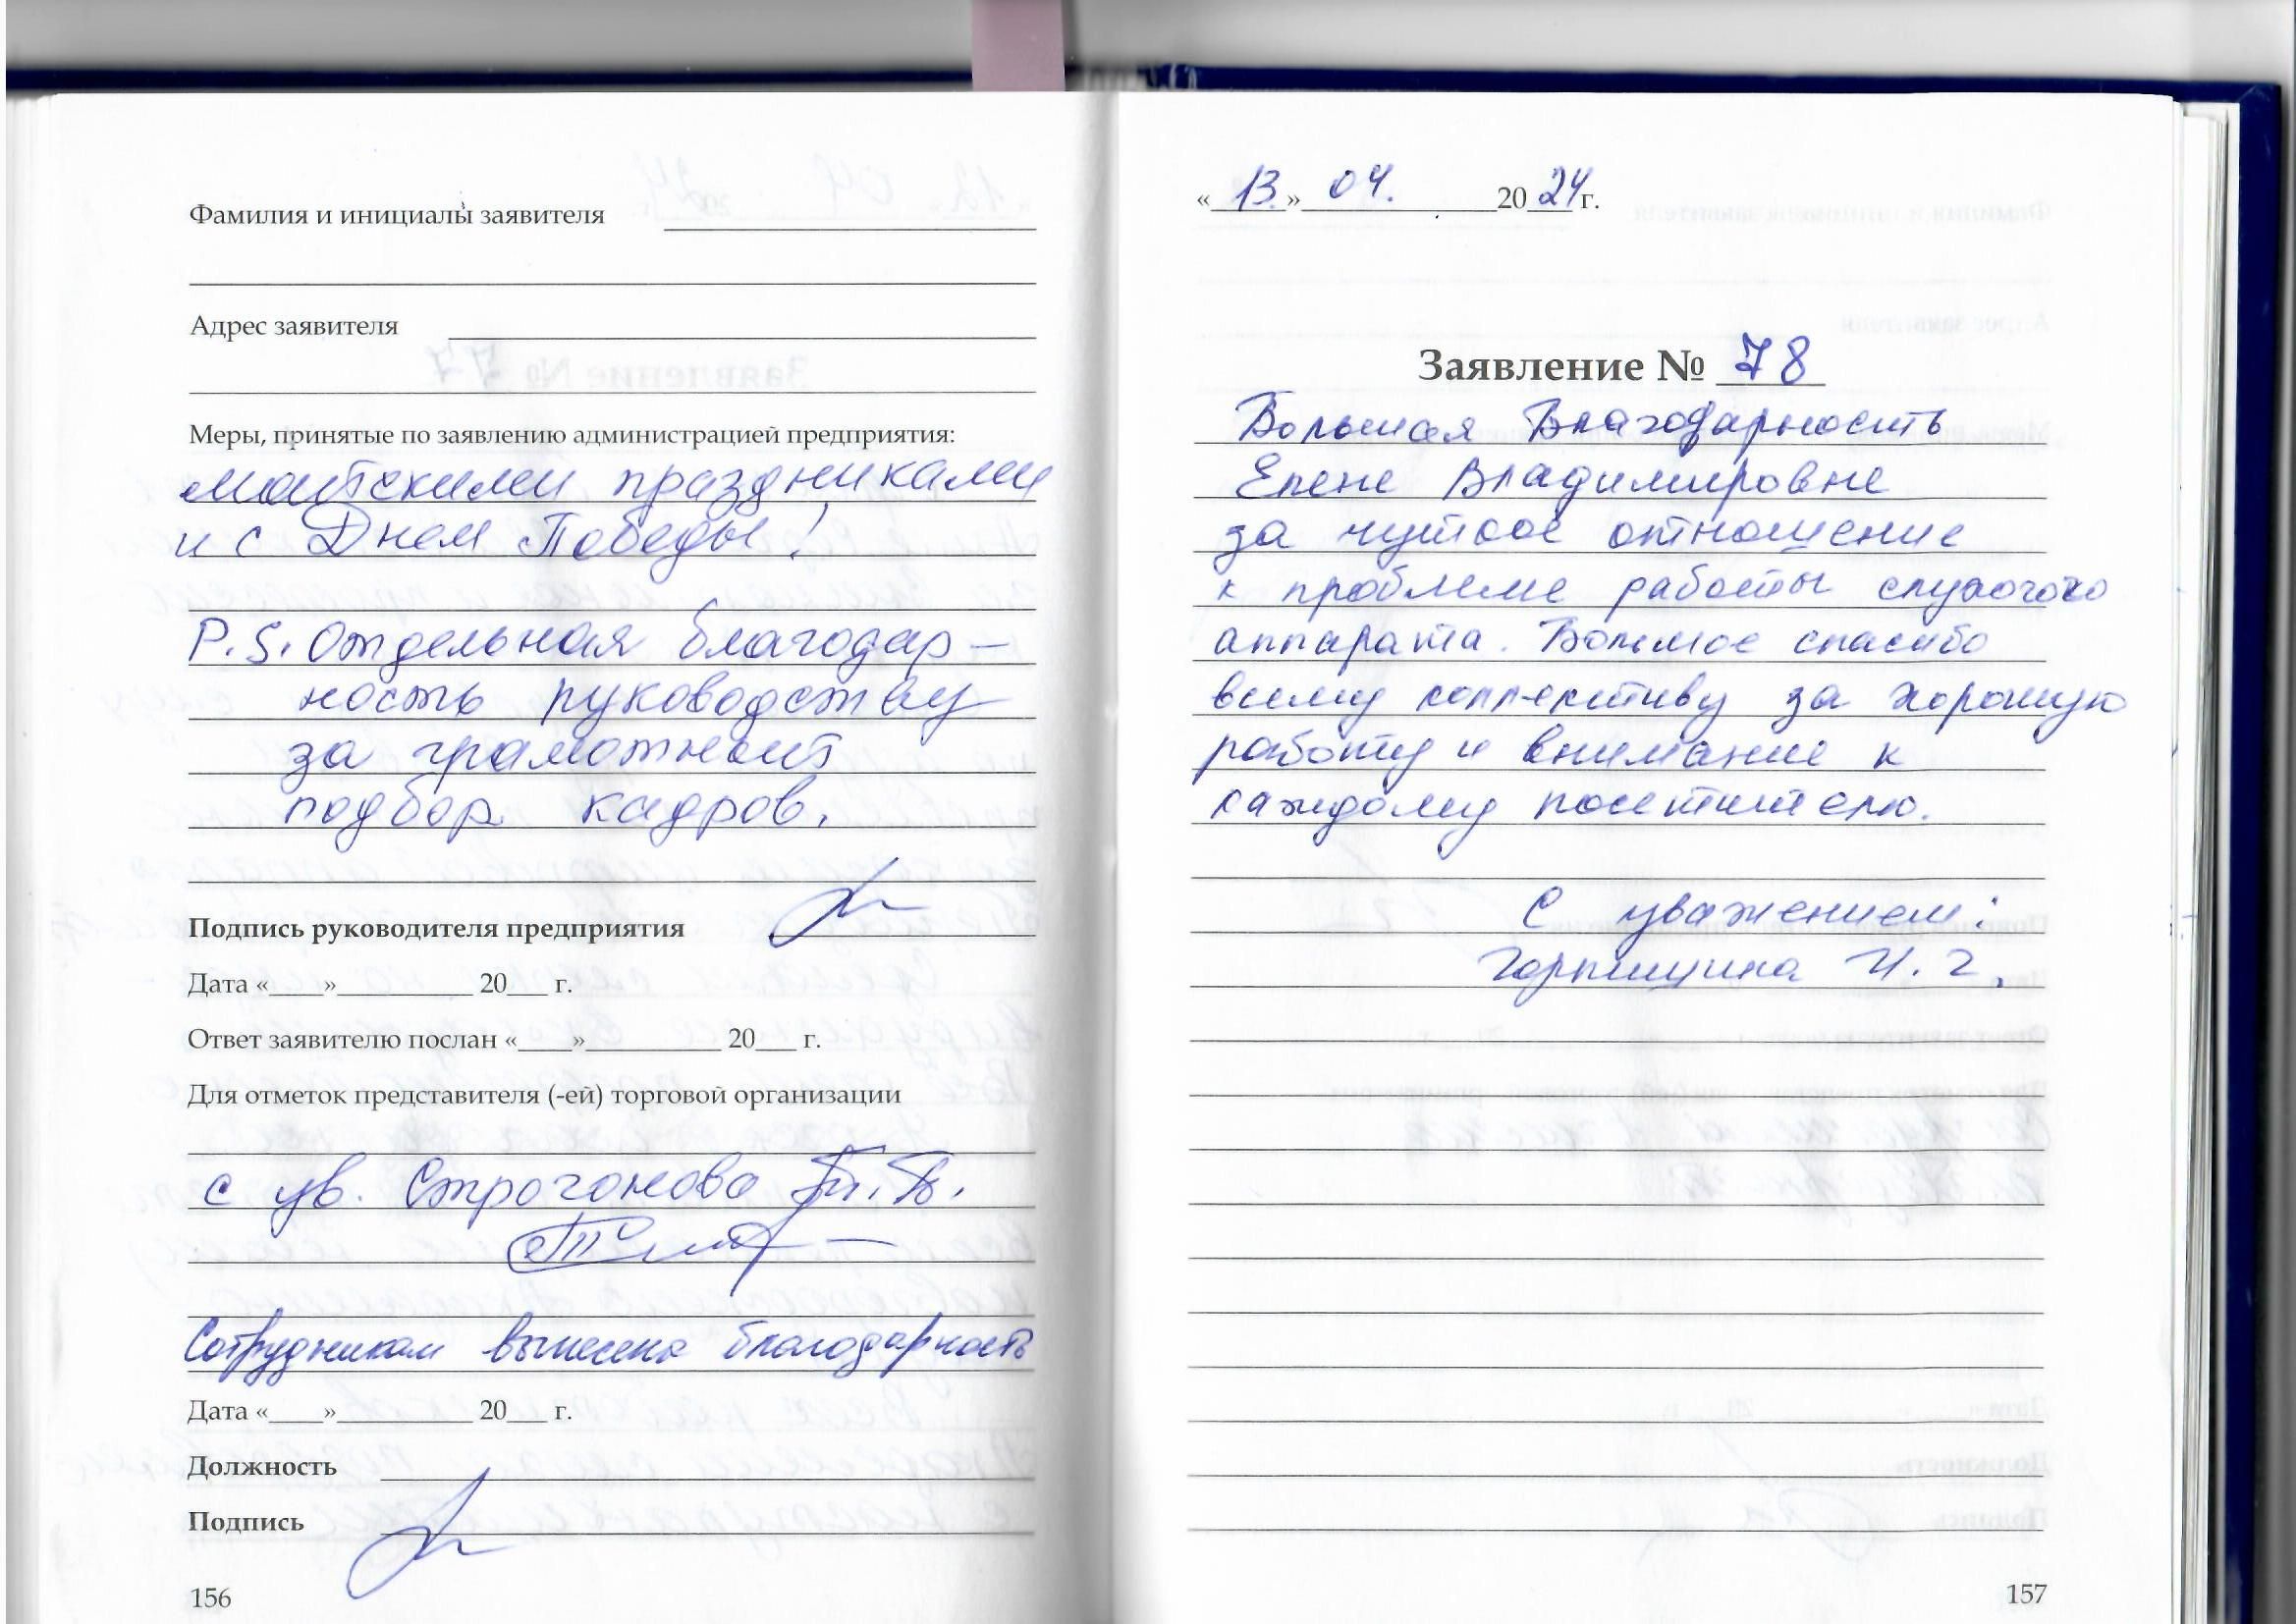 Фамилия и инициалы заявителя
Адрес заявителя
Меры, принятые по заявлению администрацией предприятия:
майскими праздниками
и с Днем Победы!
P.S. Отдельная благодар-
ность руководству
за грамотный
подбор кадров.
Подпись руководителя предприятия
Дата «____»__________ 20___ г.
Ответ заявителю послан «____»__________ 20___ г.
Для отметок представителя (-ей) торговой организации
с ув. Строгонова Т.В.
Сотрудникам вынесена благодарность
Дата «____»__________ 20___ г.
Должность
Подпись
156
«13.» 04. 2024 г.
Заявление № 78
Большая Благодарность
Елене Владимировне
за чуткое отношение
к проблеме работы слухового
аппарата. Большое спасибо
всему коллективу за хорошую
работу и внимание к
каждому посетителю.
С уважением:
И. Г.
157